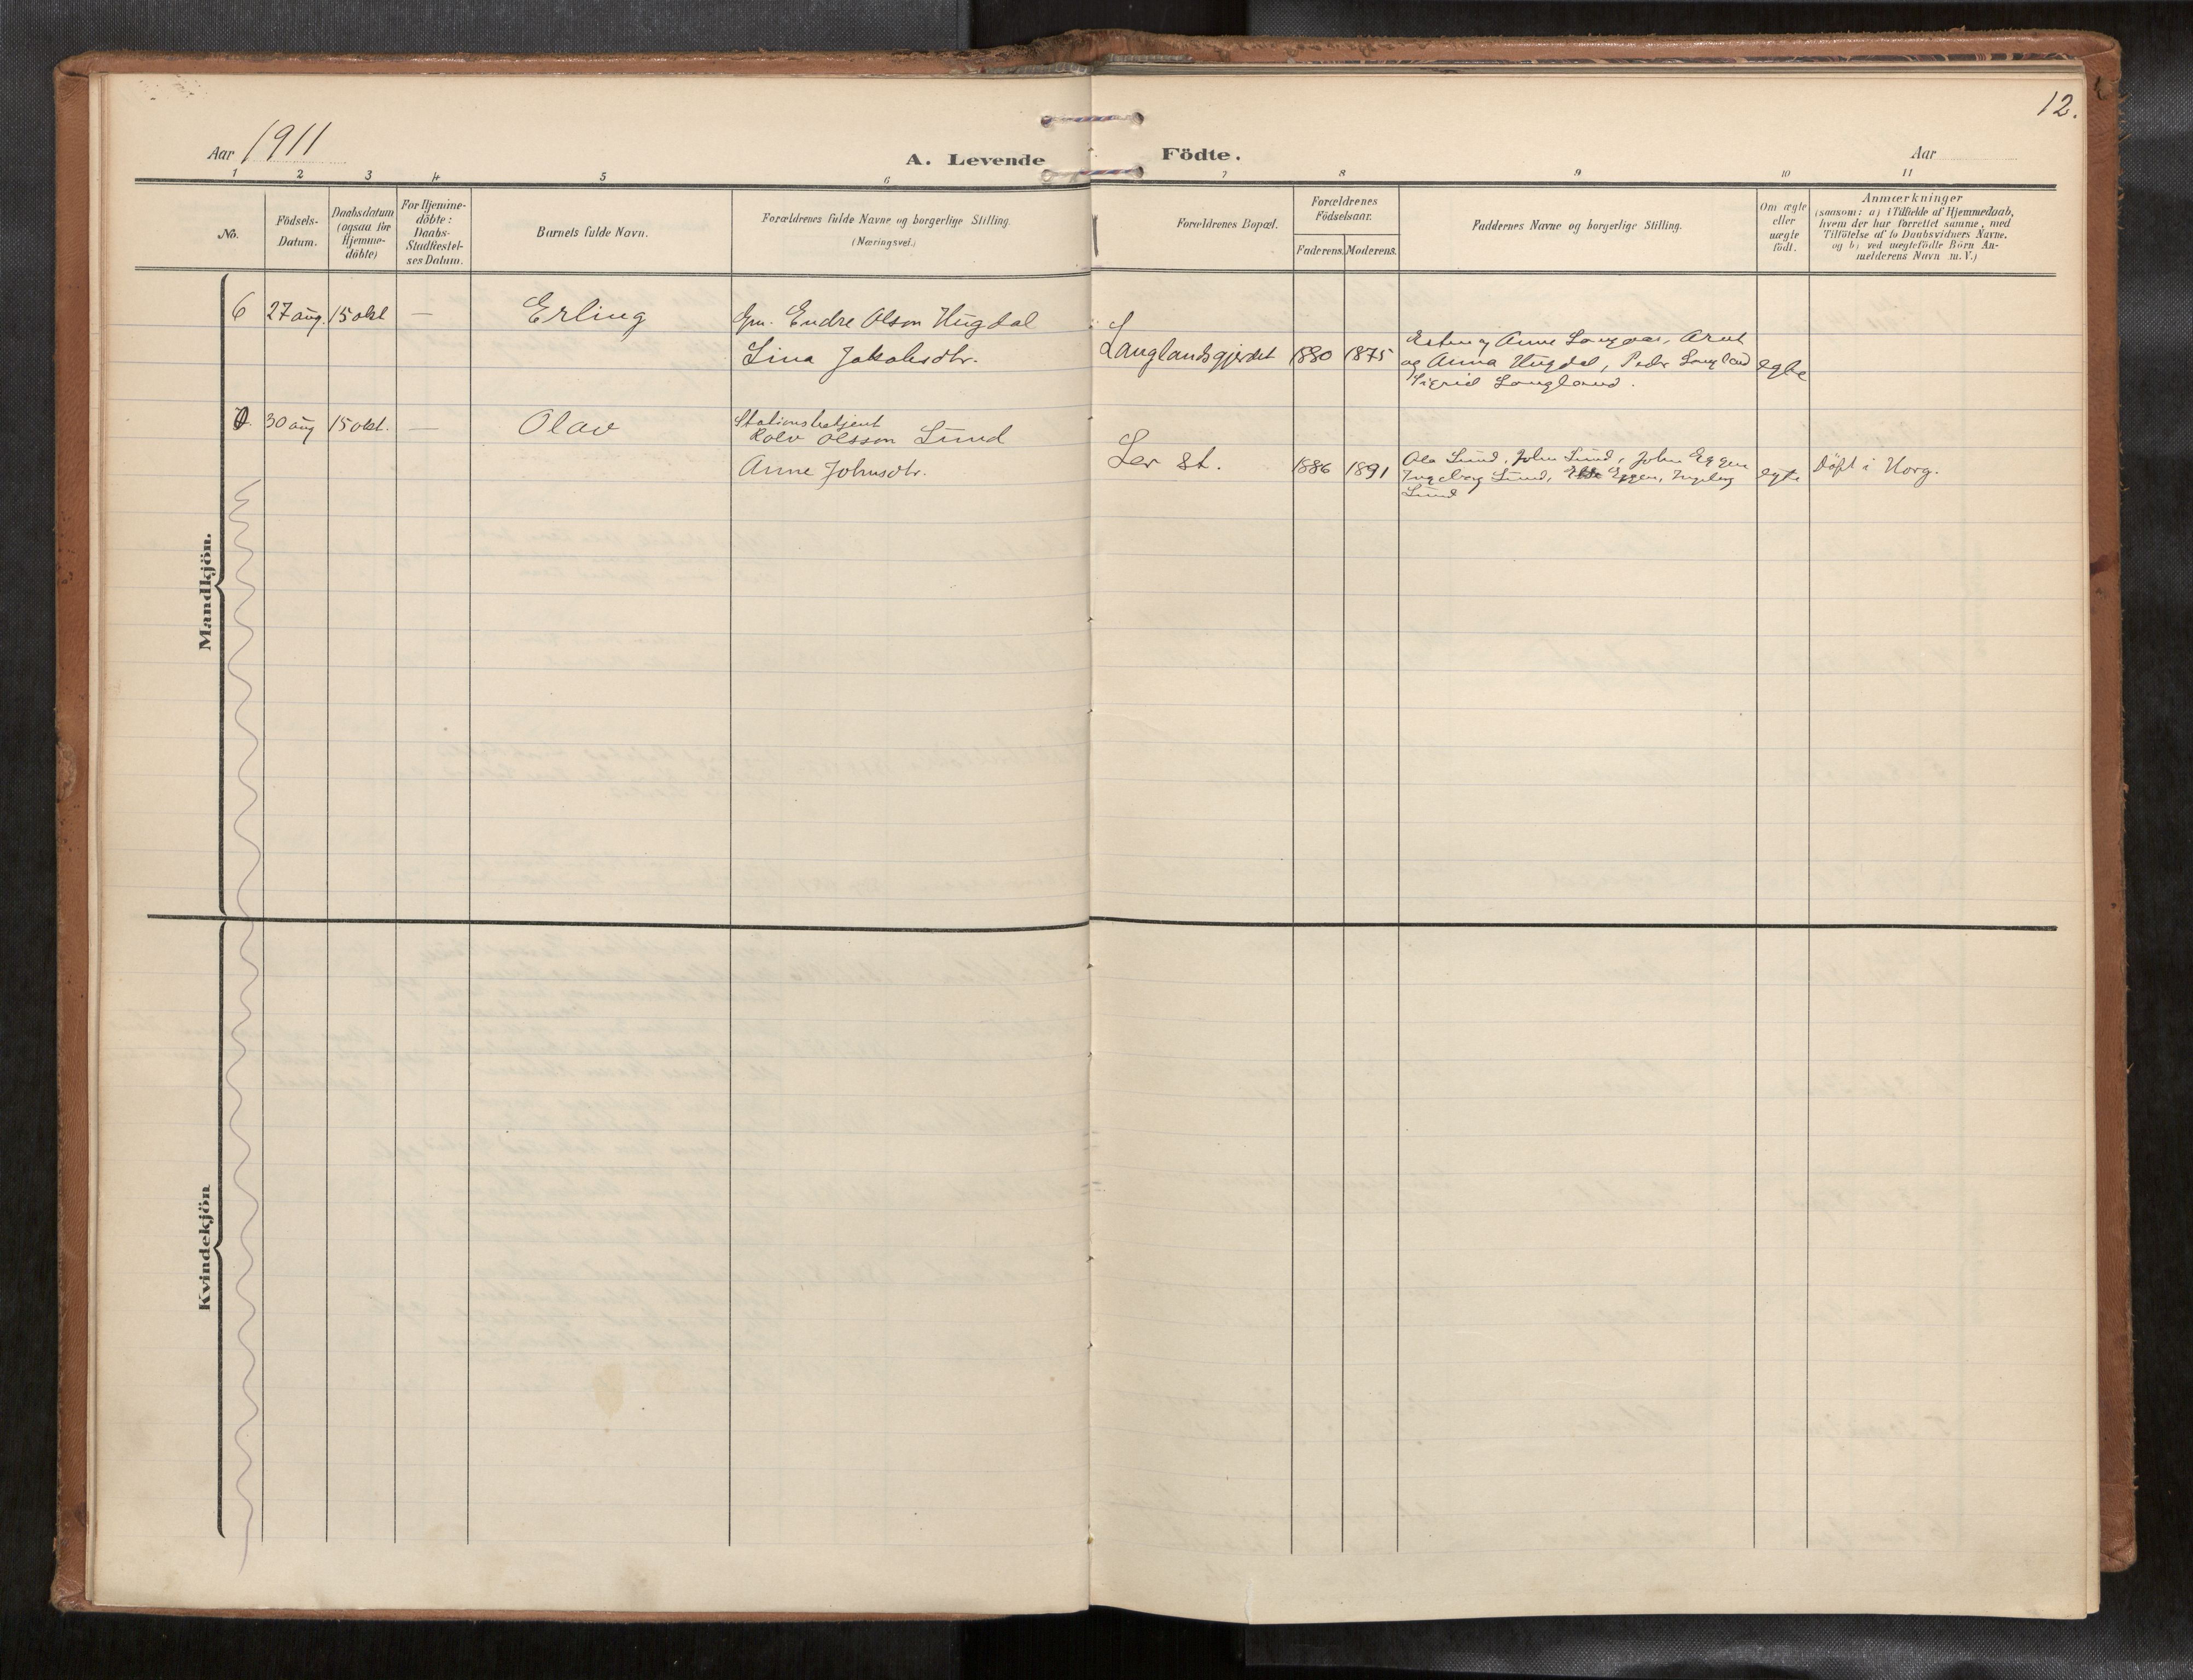 12.
Aar 1911
A. Levende Födte.
Aar
1 2 3 4 5 6 7 8 9 10 11
No.
Födsels-
Datum.
Daabsdatum
(ogsaa for
Hjemme-
döbte)
For Hjemme-
döbte:
Daabs-
Stadfæstel-
ses Datum.
Barnets fulde Navn.
Forældrenes fulde Navne og borgerlige Stilling.
(Næringsvei.)
Forældrenes Bopæl.
Forældrenes
Födselsaar.
Faderens. Moderens.
Faddernes Navne og borgerlige Stilling.
Om ægte
eller
uægte
födt.
Anmærkninger
(saasom: a) i Tilfælde af Hjemmedaab,
hvem der har forrettet samme, med
Tilföielse af to Daabsvidners Navne.
og b) ved uægtefödte Börn An-
melderens Navn m. V.)
Mandkjön.
6 27 aug. 15 okt — Erling
Gm. Endre Olson Hugdal
Lina Jakobsdtr.
Langlandsgjerdet 1880 1875
Esten og Anne, Arnt
og Anna Hugdal, Peder Langland
Sigrid Langland.
egte
0. 30 aug 15 okt. — Olav
Stationsbetjent
Rolv Olsson Lund
Anne Johnsdtr.
Ler St. 1886 1891
Ola Lund, John Lund, John Eggen
Ingeborg Lund, Eggen, Ingeborg
Lund
egte
döpt i Horg.
Kvindekjön